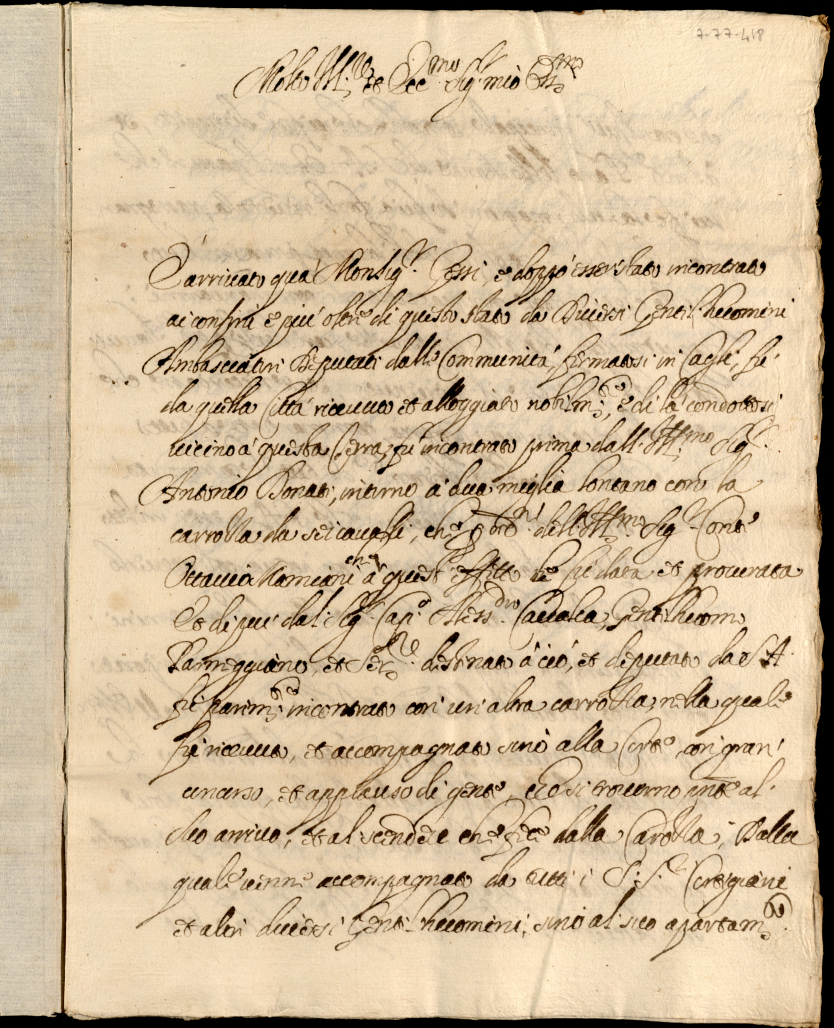 7-77-418
Molto Ill.re et Ecc.mo Sig.r mio
È arrivato quà Monsig.r Gessi, e doppò esser stato incontrato
ai confini e più oltre di questo stato da Diversi Gentil'huomini
Ambasciatori Deputati dalle Communità, fermatosi in Cagli, fù
da quella Città ricevuto et alloggiato nobilm.te, e di là condottosi
vicino à questa Terra, fù incontrato prima dall' Ill.mo Sig.r
Antonio Donati, intorno à dua miglia lontano con la
carrozza da sei cavalli, che dell'Ill.mo Sig.r Conte
Ottavia Mamiani che à quest' effetto fù data et procurata
Et di poi dal Sig.r Cap.o Aless.dro Gentil'huomo
Parmeggiano, et destinato à ciò, et deputato da S. A.
fù parim.te incontrato con un' altra carrozza, nella quale
fù ricevuto, et accompagnato sino alla Corte, con gran'
concorso, et applauso di gente, che si trovorno pnte al
suo arrivo, et al scendere che fece dalla Carozza, Dalla
quale venne accompagnato da tutti i S.S.ri Cortegiani
et altri diversi Gentil'huomini, sino al suo apartam.to